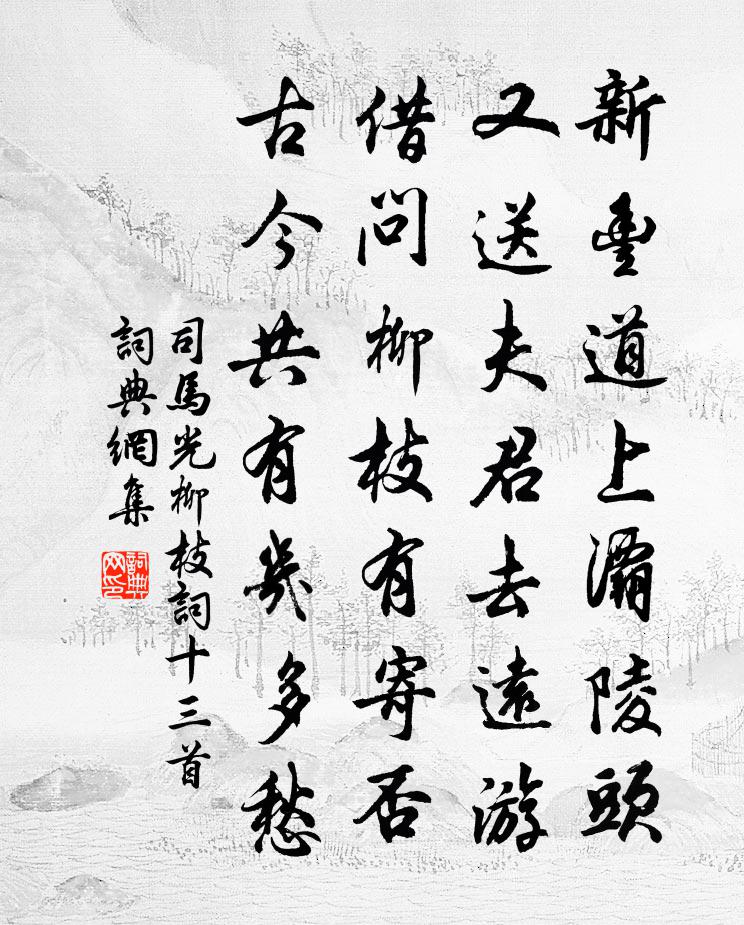 新豐道上灞陵頭
又送夫君去遠游
借問柳枝有寄否
古今共有幾多愁
司馬光柳枝詞十三首
詞典網集
詞典网印